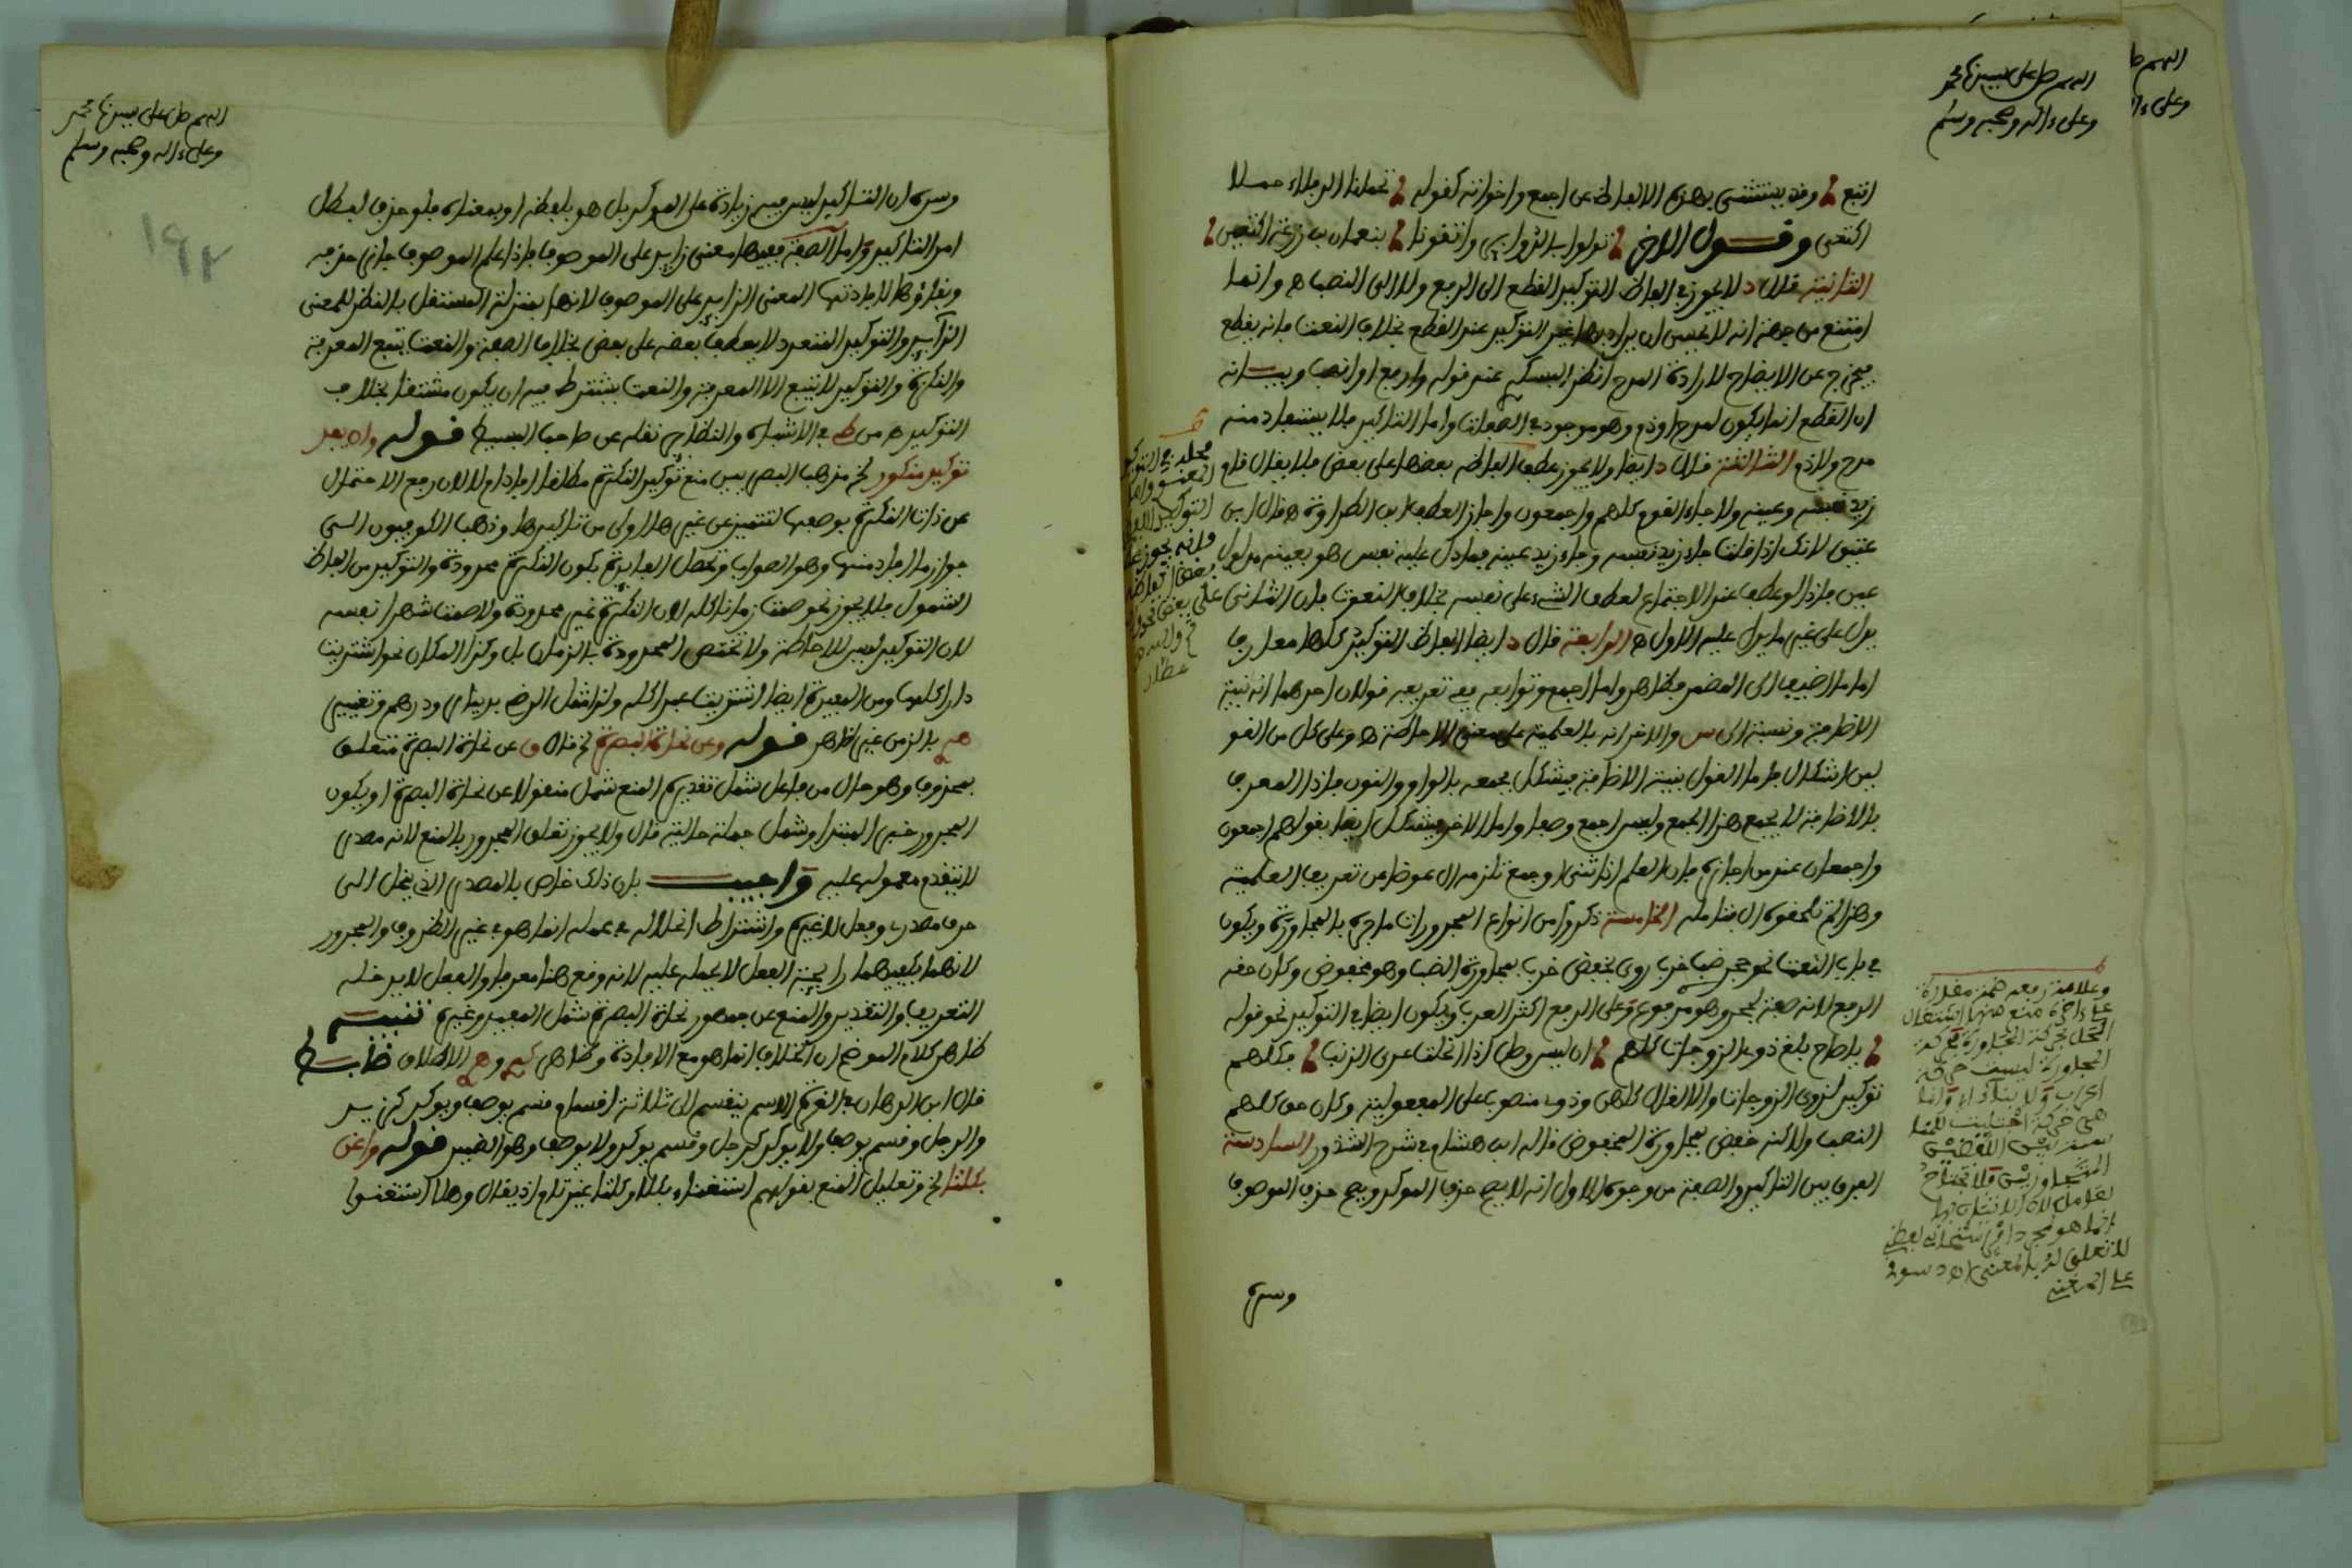 اللهم صل على نبينا محمد
وعلى ءاله وصحبه وسلم
اتبع وقد يستغنى بهذه الالفاظ عن اجمع واخواته كقوله تحملنى الذلفاء حولا
اكتعى وقول الاخر تولوا بالدوابر واتقونا بنعمان بن زرعة اكتعين
الثانية قال د لا يجوز في الفاظ التوكيد القطع الى الرفع ولا الى النصب اه وانما
امتنع من جهة انه لا يحسن ان يراد بها غير التوكيد عند القطع بخلاف النعت فانه يقطع
فيخرج عن الايضاح لارادة المدح انظر البسكي عند قوله وارفع او انصب وبيانه
ان القطع انما يكون لمدح او ذم وهو موجود في الصفات واما التاكيد فلا يستفاد منه
مدح ولا ذم الثالثة قال د ايضا ولا يجوز عطف الفاظه بعضها على بعض فلا يقال قام
زيد نفسه وعينه ولا جاء القوم كلهم واجمعون واجاز العطف ابن الطراوة اه قال ابن
عتيق لانك اذا قلت جاء زيد نفسه وجاء زيد عينه فما دل عليه نفس هو بعينه مدلول
عين فاذا لو عطف عند الاجتماع لعطف الشيء على نفسه بخلاف النعوت فان الثانى
يدل على غير ما يدل عليه الاول اه الرابعة قال د ايضا الفاظ التوكيد كلها معارف
اما ما اضيف الى المضمر فظاهر واما اجمع وتوابعه ففي تعريفه قولان احدهما انه بنية
الاضافة ونسبه الى س والاخر انه بالعلمية على معنى الاحاطة اه وعلى كل من القو
لين اشكال فاما القول بنية الاضافة فيشكل بجمعه بالواو والنون فاذا المعرف
بالاضافة لا يجمع هذا الجمع وليس اجمع وصفا واما الاخر فيشكل ايضا بقولهم اجمعون
واجمعان عند من اجازه فان العلم اذا ثنى او جمع تلزمه ال عوضا عن تعريف العلمية
وهذا لم تلحقه ال فتامله الخامسة ذكروا من انواع المجرورات ما جر بالمجاورة ويكون
في باب النعت نحو جحر ضب خرب روى بخفض خرب بمجاورة الضب وهو مخفوض وكان حقه
الرفع لانه صفة لجحر وهو مرفوع وعلى الرفع اكثر العرب ويكون ايضا في التوكيد نحو قوله
يا صاح بلغ ذوى الزوجات كلهم ان ليس وصل اذا انحلت عرى الذنب فكلهم
توكيد لذوى الزوجات والا لقال كلهن وذوى منصوب على المفعولية وكان حق كلهم
النصب ولاكنه خفض بمجاورة المخفوض قاله ابن هشام في شرح الشذور السادسة
الفرق بين التاكيد والصفة من وجوه الاول انه لا يصح حذف الموكد ويصح حذف الموصوف
وسره
محله في التوكيد
المعنوى واما
التوكيد اللفظى
فانه يجوز عطف
بعض الفاظه
على بعض نحو
عطار
وعلامة رفعه ضمة مقدرة
على ءاخره منع منها اشتغال
المحل بحركة المجاورة فحركة
المجاورة ليست حركة
اعراب ولا بناء وانما
هى حركة اجتلبت للمناسبة بين اللفظين
المتجاورين فلا تحتاج
لعامل لان الاتيان بها
انما هو لمجرد امر استحسانى لفظى
لا تعلق له بالمعنى اه دسوقى
على المغنى
اللهم صل على نبينا محمد
وعلى ءاله وصحبه وسلم
١٩٢
وسره ان التاكيد ليس فيه زيادة على الموكد بل هو بلفظه او بمعناه فلو حذف لبطل
امر التاكيد واما الصفة ففيها معنى زايد على الموصوف فاذا علم الموصوف جاز حذفه
وبقاؤها لافادتها المعنى الزايد على الموصوف لانها بمنزلة المستقل بالنظر للمعنى
الزايد والتوكيد المتعدد لا يعطف بعضه على بعض بخلاف الصفة والنعت يتبع المعرفة
والنكرة والتوكيد لا يتبع الا المعرفة والنعت يشترط فيه ان يكون مشتقا بخلاف
التوكيد اه من ط في الاشباه والنظائر نقله عن صاحب البسيط قوله وان يفد
توكيد منكور الخ مذهب البصريين منع توكيد النكرة مطلقا افاد ام لا لان رفع الاحتمال
عن ذات النكرة بوصفها لتتميز عن غيرها اولى من تاكيدها وذهب الكوفيون الى
جواز ما افاد منها وهو الصواب وتحصل الفايدة بكون النكرة محدودة والتوكيد من الفاظ
الشمول فلا يجوز نحو صمت زمانا كله لان النكرة غير محدودة ولا صمت شهرا نفسه
لان التوكيد ليس للاحاطة ولا تختص المحدودة بالزمان بل وكذا المكان نحو اشتريت
دارا كلها ومن المفيدة ايضا اشتريت عبدا كله ولذا مثل الرضى بدينار ودرهم وتقييد
بالزمن غير ظاهر قوله وعن نحاة البصرة الخ قال ق عن نحاة البصرة متعلق
بمحذوف وهو حال من فاعل شمل تقديره المنع شمل منقولا عن نحاة البصرة او يكون
المجرور خبر المبتدا وشمل جملة حالية قال ولا يجوز تعلق المجرور بالمنع لانه مصدر
لا يتقدم معموله عليه واجيب بان ذلك خاص بالمصدر الذى ينحل الى
حرف مصدرى وفعل لا غيره واشتراط انحلاله في عمله انما هو في غير الظروف والمجرور
لانهما يكفيهما رايحة الفعل لا بحمله عليه لانه وقع هنا معرفا والفعل لا يدخله
التعريف والتقدير والمنع عن جمهور نحاة البصرة شمل المفيد وغيره تنبيه
ظاهر كلام الموضح ان الخلاف انما هو مع الافادة وظاهر الاطلاق ضابط
قال ابن الدهان في الغرة الاسم ينقسم الى ثلاثة اقسام قسم يوصف ويوكد كزيد
والرجل وقسم يوصف ولا يوكد كرجل وقسم يوكد ولا يوصف وهو الضمير قوله واغن
بكلتا الخ وتعليل المنع بقولهم استغناء بكلا وكلتا غير تام اذ يقال وهلا استغنوا